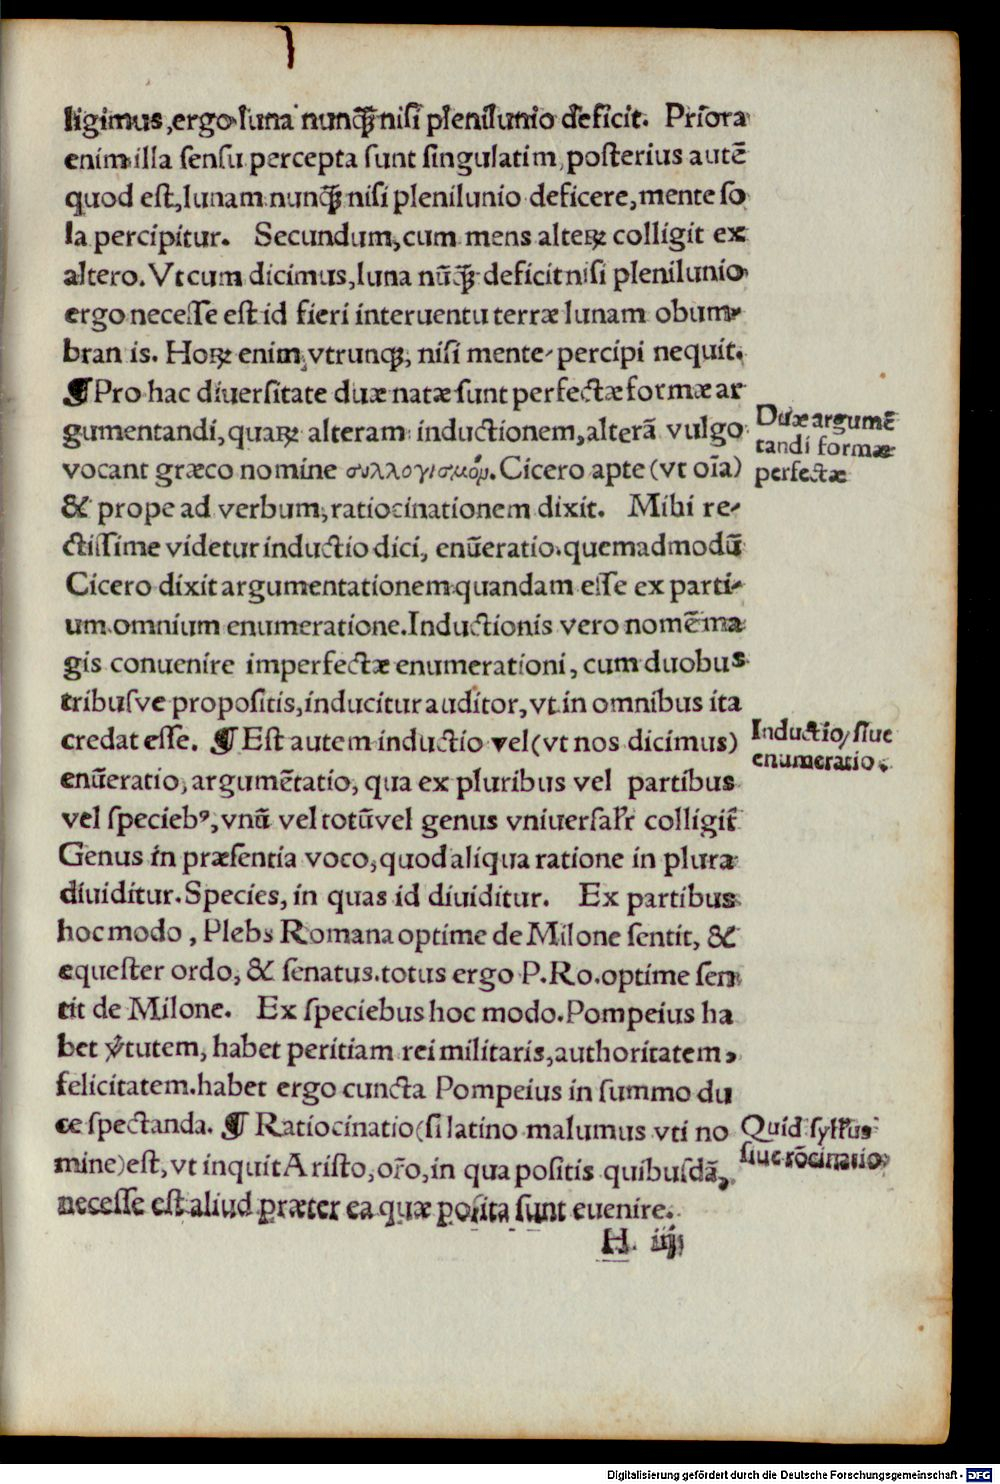 ligimus, ergo luna nunꝗ̃ nisi plenilunio deficit. Priora
enim illa sensu percepta sunt singulatim, posterius autẽ
quod est, lunam nunꝗ̃ nisi plenilunio deficere, mente so
la percipitur. Secundum, cum mens alteꝝ colligit ex
altero. Vt cum dicimus, luna nũꝗ̃ deficit nisi plenilunio
ergo necesse est id fieri interuentu terræ lunam obum-
bran is. Hoꝝ enim vtrunqꝫ, nisi mente percipi nequit.
¶ Pro hac diuersitate duæ natæ sunt perfectæ formæ ar
gumentandi, quaꝝ alteram inductionem, alterã vulgo
vocant græco nomine συλλογισμόμ. Cicero apte (vt oĩa)
& prope ad verbum, ratiocinationem dixit. Mihi re-
ctissime videtur inductio dici, enũeratio. quemadmodũ
Cicero dixit argumentationem quandam esse ex parti-
um omnium enumeratione. Inductionis vero nomẽ ma
gis conuenire imperfectæ enumerationi, cum duobus
tribusve propositis, inducitur auditor, vt in omnibus ita
credat esse. ¶ Est autem inductio vel (vt nos dicimus)
enũeratio, argumẽtatio, qua ex pluribus vel partibus
vel speciebꝰ, vnũ vel totũ vel genus vniuersalr̃ colligit̃
Genus in præsentia voco, quod aliqua ratione in plura
diuiditur. Species, in quas id diuiditur. Ex partibus
hoc modo, Plebs Romana optime de Milone sentit, &
equester ordo, & senatus. totus ergo P. Ro. optime sen
tit de Milone. Ex speciebus hoc modo. Pompeius ha
bet v̛tutem, habet peritiam rei militaris, authoritatem,
felicitatem. habet ergo cuncta Pompeius in summo du
ce spectanda. ¶ Ratiocinatio (si latino malumus vti no
mine) est, vt inquit Aristo, or̃o, in qua positis quibusdã,
necesse est aliud præter ea quæ posita sunt euenire.
H. iiij
Duæ argumẽ
tandi formæ
perfectæ
Inductio, siue
enumeratio.
Quid syll'us
siue rõcinatio
Digitalisierung gefördert durch die Deutsche Forschungsgemeinschaft - DFG